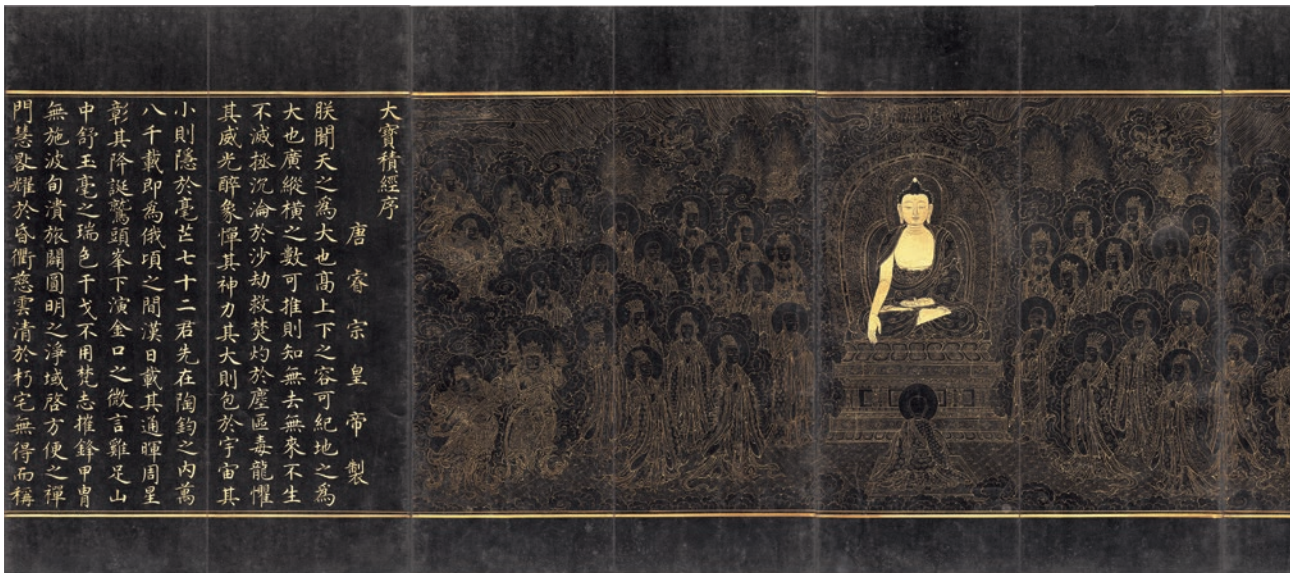 大寶積經序
唐睿宗皇帝製
朕聞天之為大也高上下之容可紀地之為
大也廣縱橫之數可推則知無去無來不生
不滅拯沉淪於沙劫救焚灼於塵區毒龍懼
其威光醉象憚其神力其大則包於宇宙其
小則隱於毫芒七十二君先在陶鈞之內萬
八千載即為俄頃之間漢日載其通暉周星
彰其降誕鷲頭峯下演金口之微言雞足山
中舒玉毫之瑞色干戈不用梵志摧鋒甲冑
無施波旬潰旅闢圓明之淨域啓方便之禪
門慧㫚耀於昏衢慈雲清於朽宅無得而稱